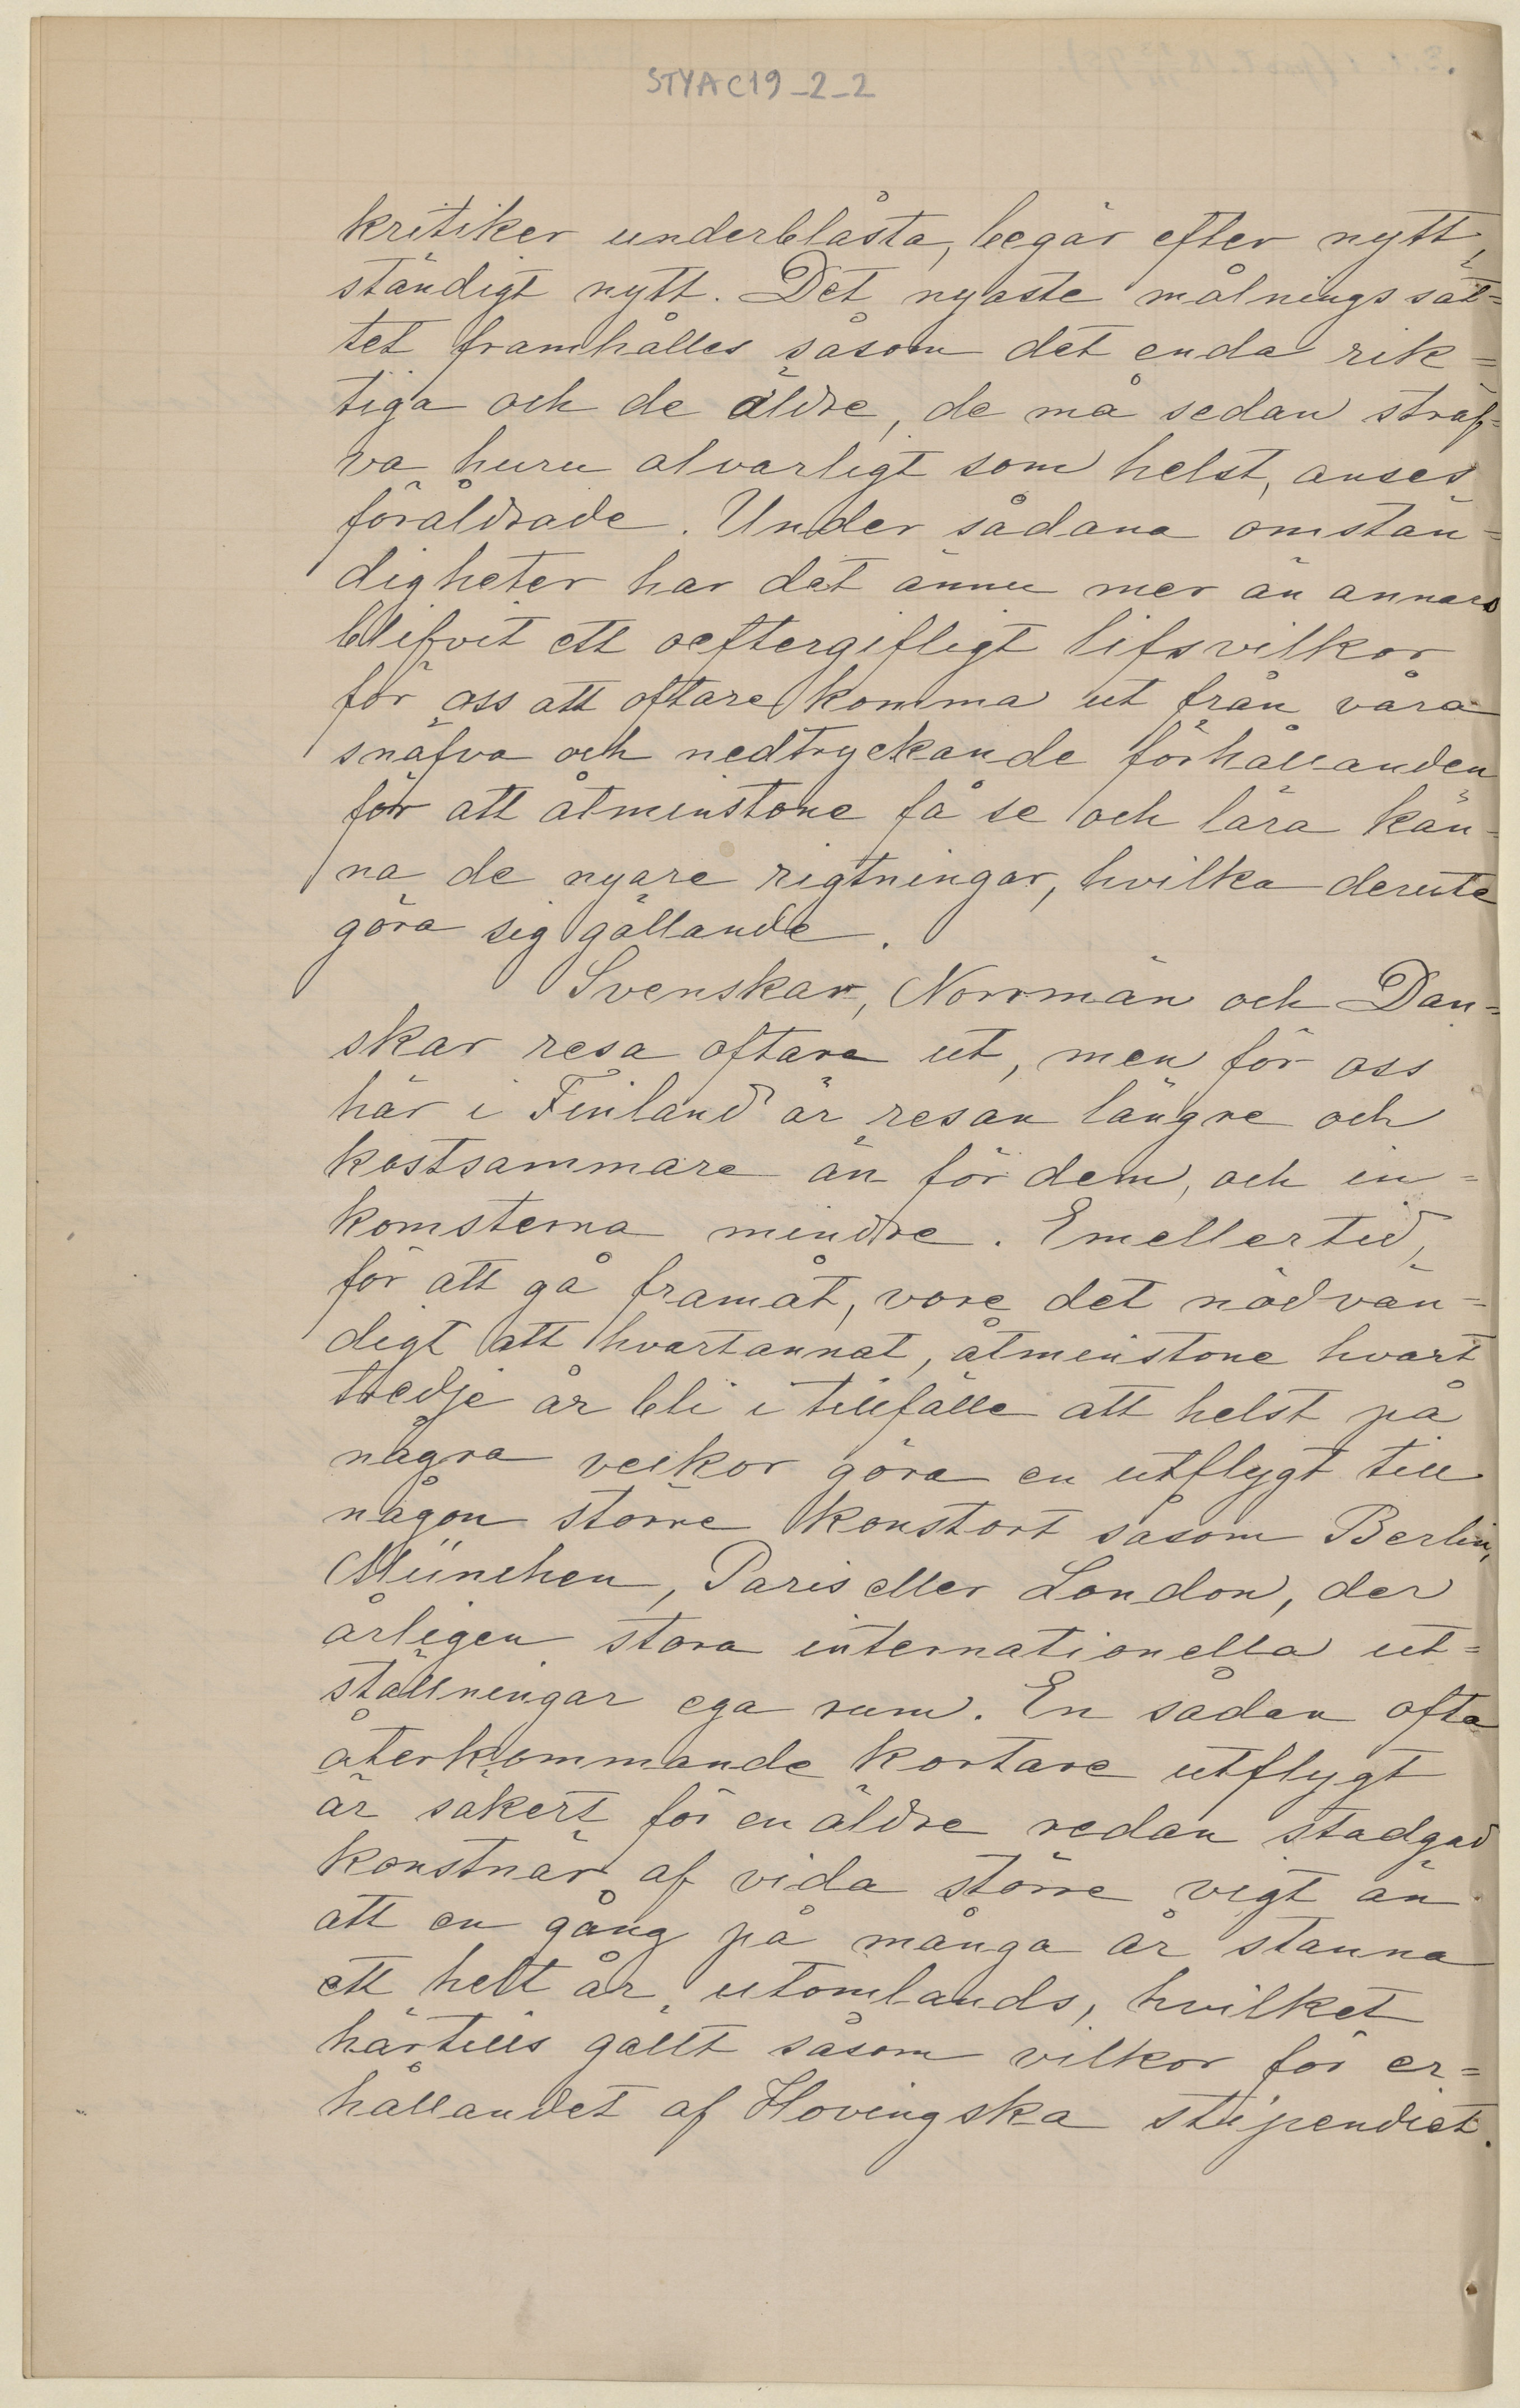 STYA C19_2_2
kritiker underblåsta, begär efter nytt,
ständigt nytt. Det nyaste målningssät=
tet framhålles såsom det enda rik=
tiga och de äldre, de må sedan sträf=
va huru alvarligt som helst, anses
föråldrade. Under sådana omstän=
digheter har det ännu mer än annars
blifvit ett oeftergifligt lifsvilkor
för oss att oftare komma ut från våra
snäfva och nedtryckande förhållanden
för att åtminstone få se och lära kän=
na de nyare rigtningar, hvilka derute
göra sig gällande.
Svenskar, Norrmän och Dan=
skar resa oftare ut, men för oss
här i Finland är resan längre och
kostsammare än för dem, och in=
komsterna mindre. Emellertid,
för att gå framåt, vore det nödvän=
digt att hvartannat, åtminstone hvart
tredje år bli i tillfälle att helst på
några veckor göra en utflygt till
någon större konstort såsom Berlin,
München, Paris eller London, der
årligen stora internationella ut=
ställningar ega rum. En sådan ofta
återkommande kortare utflygt
är säkert för en äldre redan stadgad
konstnär af vida större vigt än
att en gång på många år stanna
ett helt år utomlands, hvilket
härtills gällt såsom vilkor för er=
hållandet af Hovingska stipendiet.